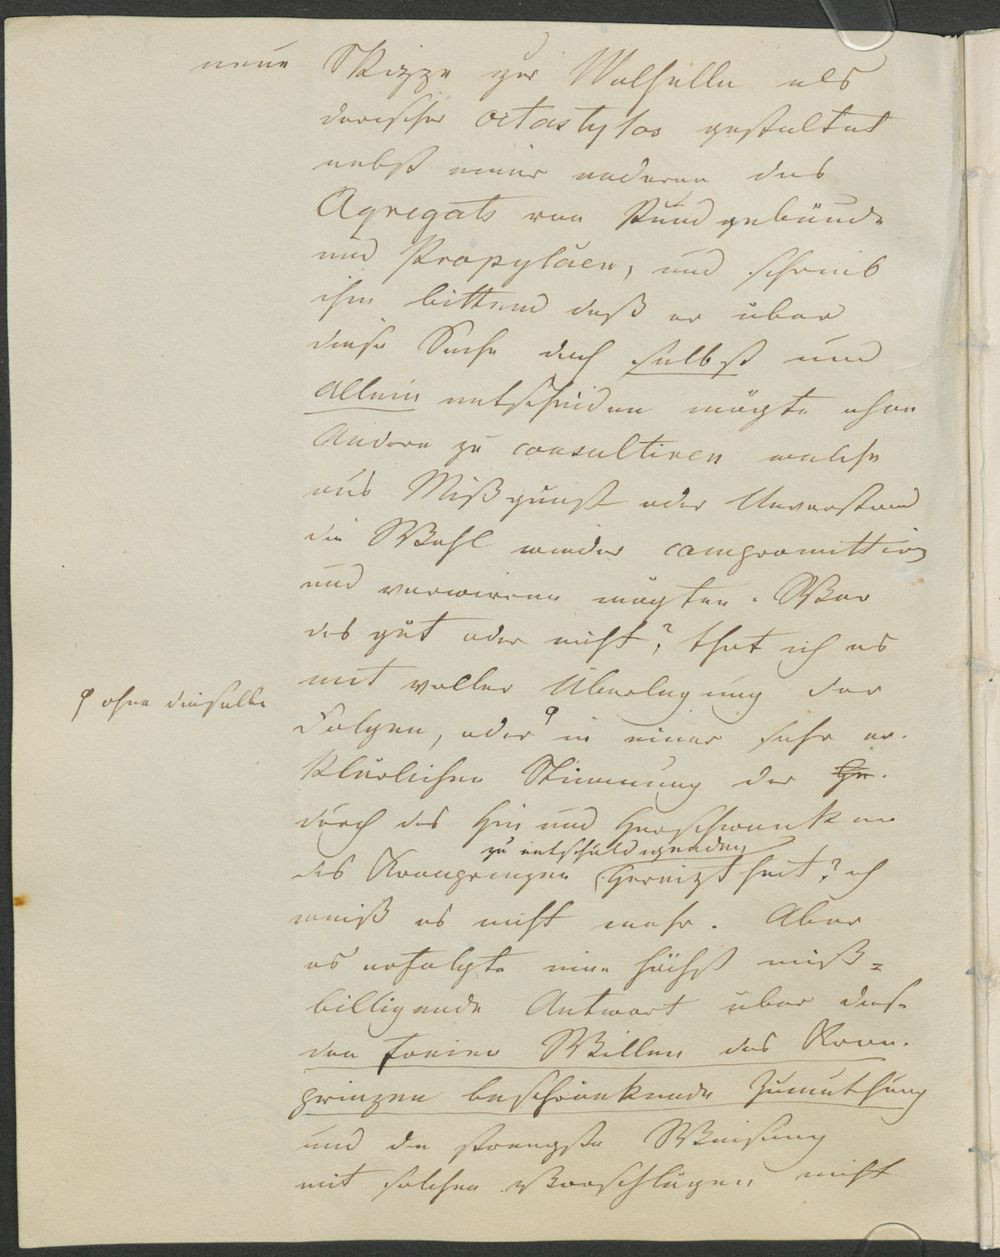 neue Skizze zur Walhalla als
dorischer octastylos gestaltet
nebst einer anderen des
Agregats von Rundgebäude
und Propyläen, und schrieb
ihm bittend daß er über
diese Sache doch selbst und
allein entscheiden mögte ohne
Andere zu consultiren welche
aus Mißgunst oder Unverstand
die Wahl wieder compromittiren
und verwirren mögten. War
das gut oder nicht?, that ich es
mit voller Überlegung der
φ ohne dieselbe
Folgen, oder φ in einer sehr er-
klärlichen Stimmung der Ge-
durch das Hin und Herschwanken
zu entschuldigenden
des Kronprinzen Gereiztheit? ich
weiß es nicht mehr. Aber
es erfolgte eine höchst miß=
billigende Antwort über diese
den freien Willen des Kron-
prinzen beschränkende Zumuthung
und die strengste Weisung
mit solchen Vorschlägen nicht